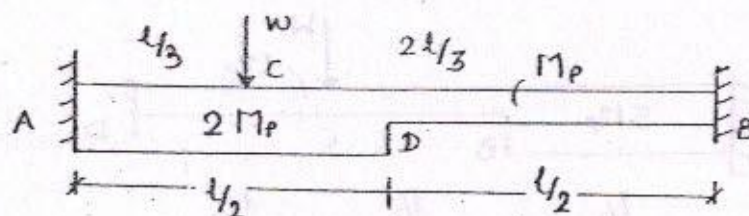 l/3 W 2l/3
C Mp
A 2 Mp D B
l/2 l/2